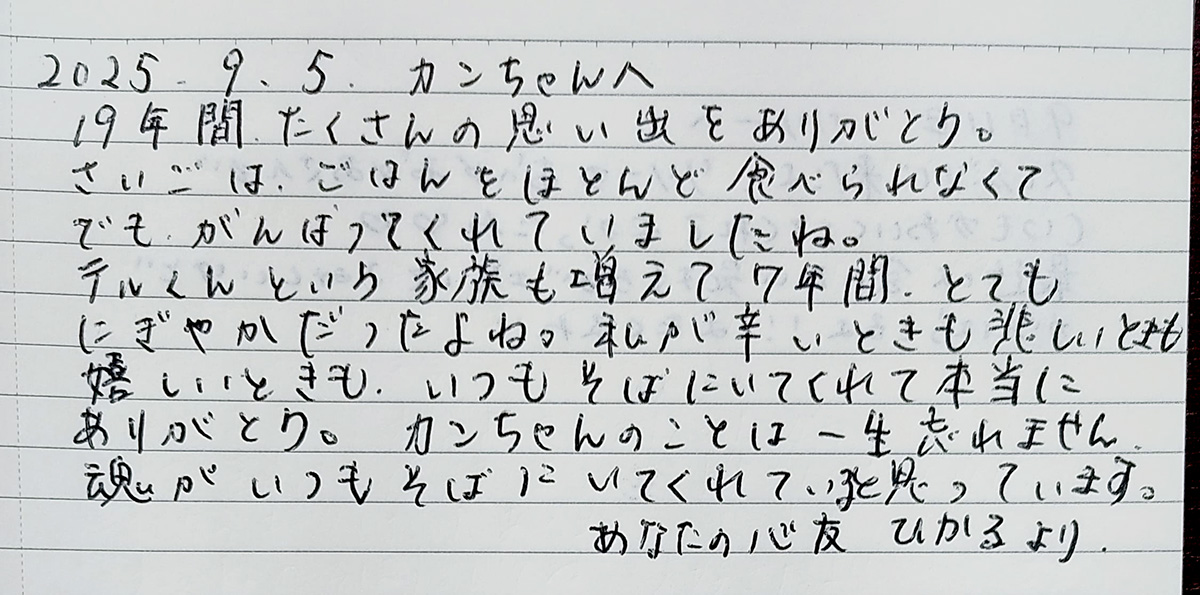 2025.9.5. カンちゃんへ
19年間、たくさんの思い出をありがとう。
さいごは、ごはんをほとんど食べられなくて
でも、がんばってくれていましたね。
テルくんという家族も増えて7年間、とても
にぎやかだったよね。私が辛いときも悲しいときも
嬉しいときも、いつもそばにいてくれて本当に
ありがとう。カンちゃんのことは一生忘れません。
魂がいつもそばにいてくれていると思っています。
あなたの心友 ひかるより.